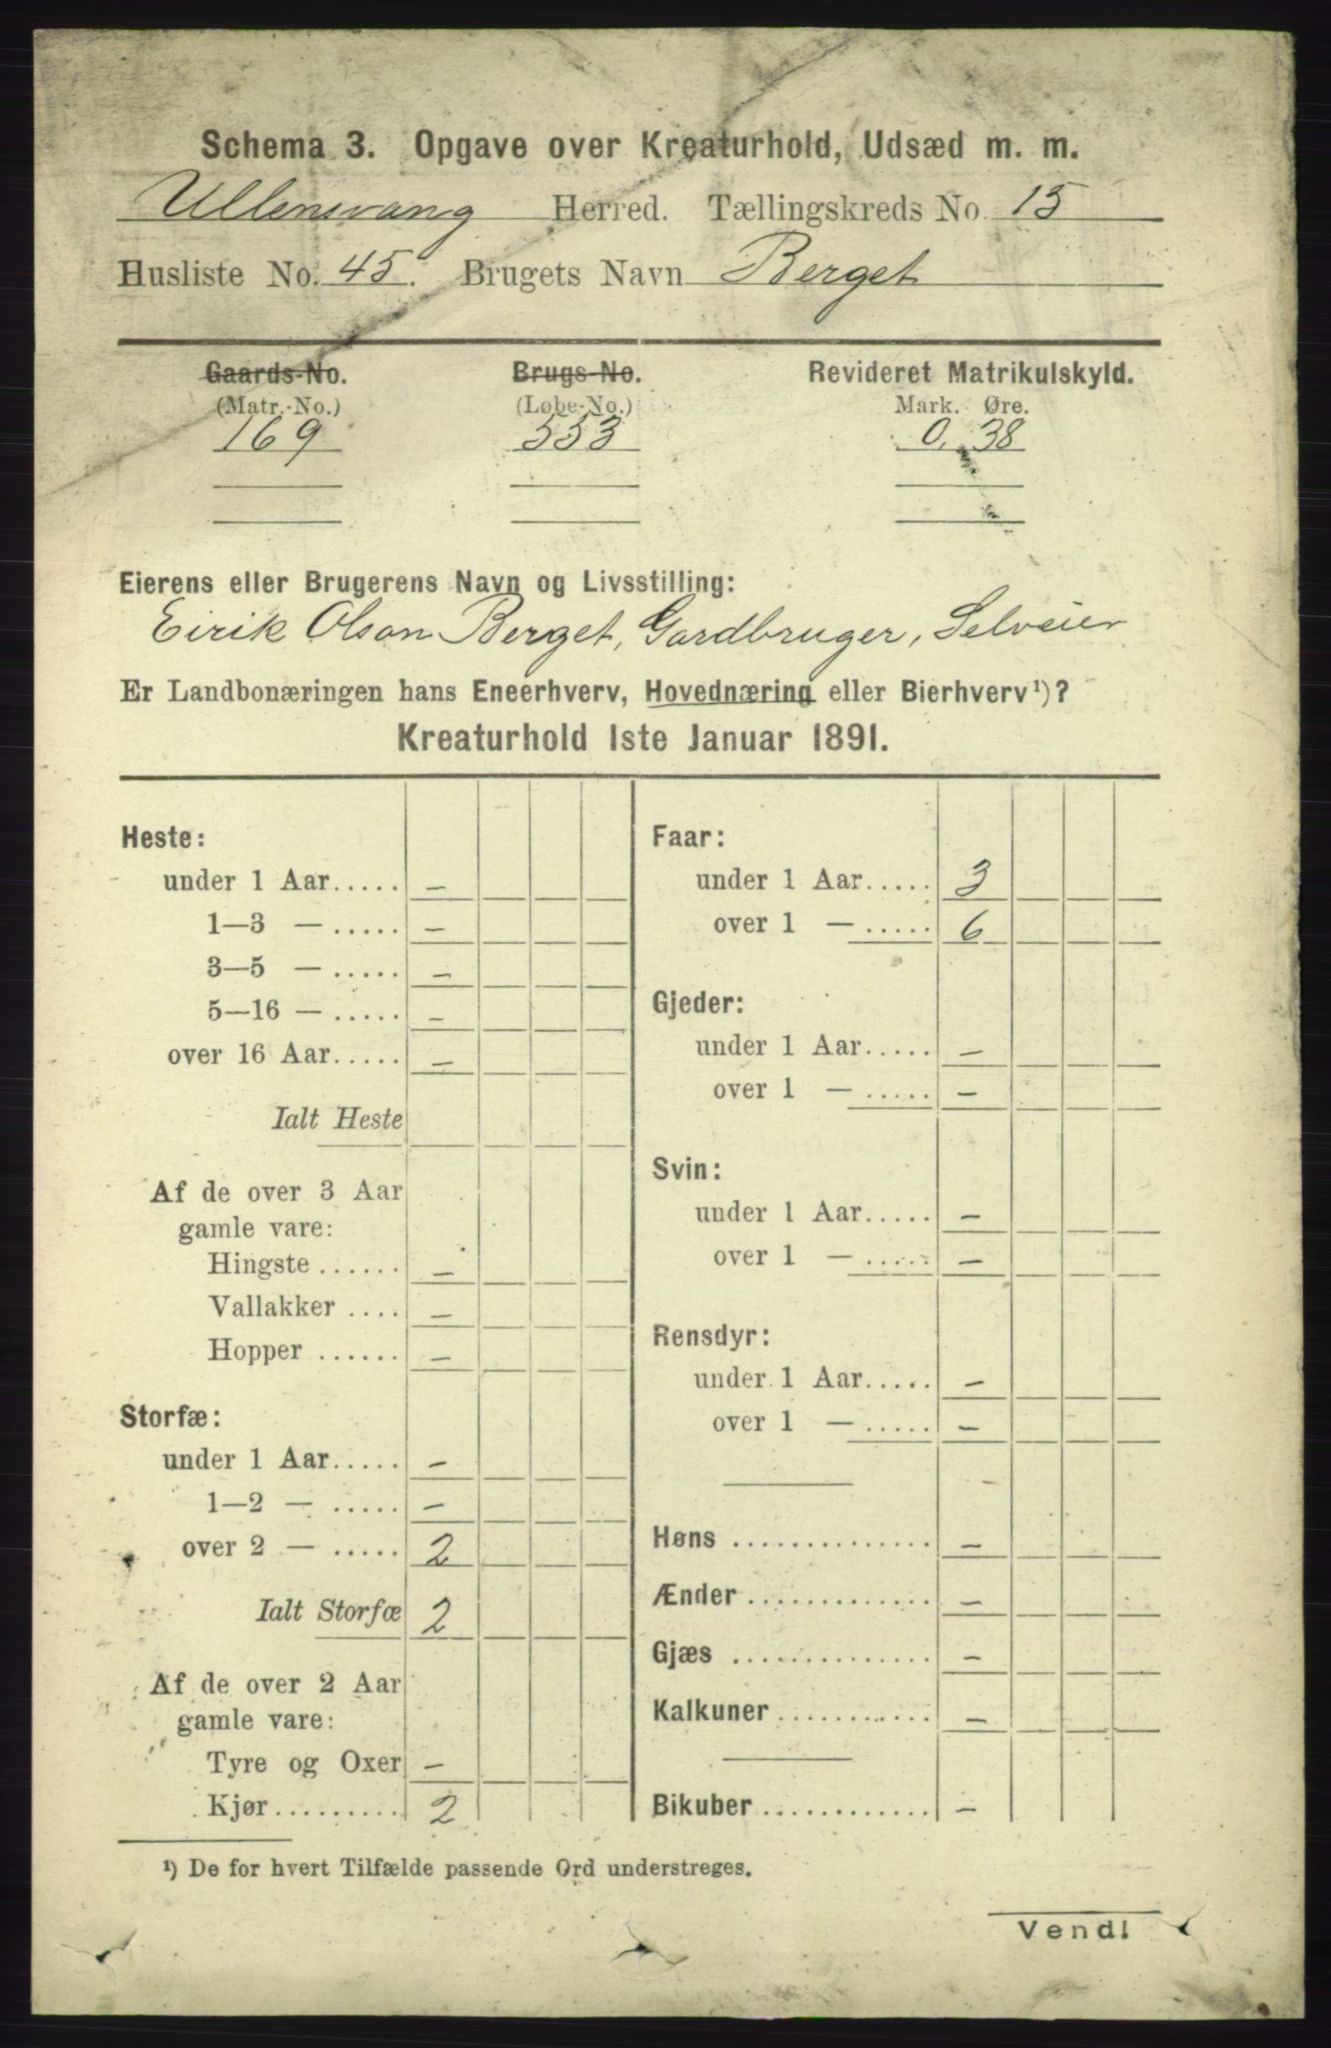 Schema 3. Opgave over Kreaturhold, Udsæd m. m.
Ullensvang Herred. Tællingskreds No. 15
Husliste No. 45. Brugets Navn Berget
Gaards-No. Brugs-No. Revideret Matrikulskyld.
(Matr.-No.) (Løbe-No.) Mark. Øre.
169 553 0,38
Eierens eller Brugerens Navn og Livsstilling:
Eirik Olson Berget, Gardbruger, Selveier
Er Landbonæringen hans Eneerhverv, Hovednæring eller Bierhverv¹)?
Kreaturhold 1ste Januar 1891.
Heste:
under 1 Aar..... –
1—3 — ..... –
3—5 — ..... –
5—16 — ..... –
over 16 Aar..... –
Ialt Heste
Af de over 3 Aar
gamle vare:
Hingste ...... –
Vallakker .... –
Hopper ...... –
Storfæ:
under 1 Aar..... –
1—2 — ..... –
over 2 — ..... 2
Ialt Storfæ 2
Af de over 2 Aar
gamle vare:
Tyre og Oxer –
Kjør......... 2
Faar:
under 1 Aar..... 3
over 1 — ..... 6
Gjeder:
under 1 Aar..... –
over 1 — ..... –
Svin:
under 1 Aar..... –
over 1 — ..... –
Rensdyr:
under 1 Aar..... –
over 1 — ..... –
Høns .............. –
Ænder ............. –
Gjæs .............. –
Kalkuner ........... –
Bikuber ............ –
¹) De for hvert Tilfælde passende Ord understreges.
Vend!